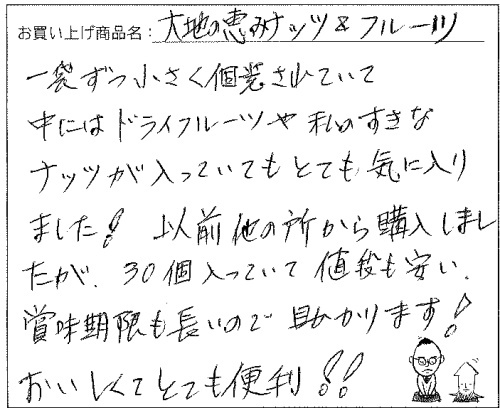 お買い上げ商品名: 大地の恵みナッツ&フルーツ
一袋ずつ小さく個装されていて
中にはドライフルーツや私のすきな
ナッツが入っていてもとても気に入り
ました! 以前他の所から購入しまし
たが、30個入っていて値段も安い、
賞味期限も長いので助かります!
おいしくてとても便利!!